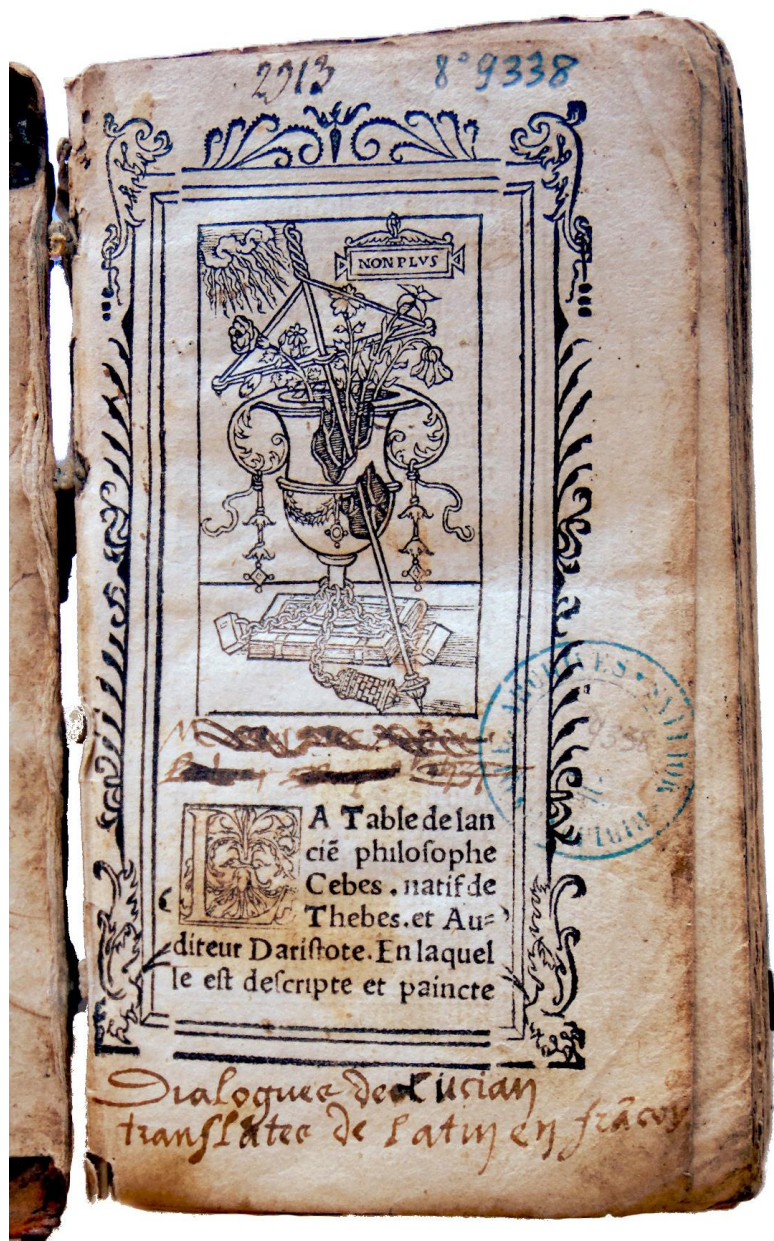 2913
8° 9338
NON PLVS
LA Table de lan
ciē philoſophe
Cebes . natif de
Thebes. et Au=
diteur Dariſtote. En laquel
le eſt deſcripte et paincte
Dialogues de Lucian
tranſlates de latin en frācoys
ARCHIVES
9338